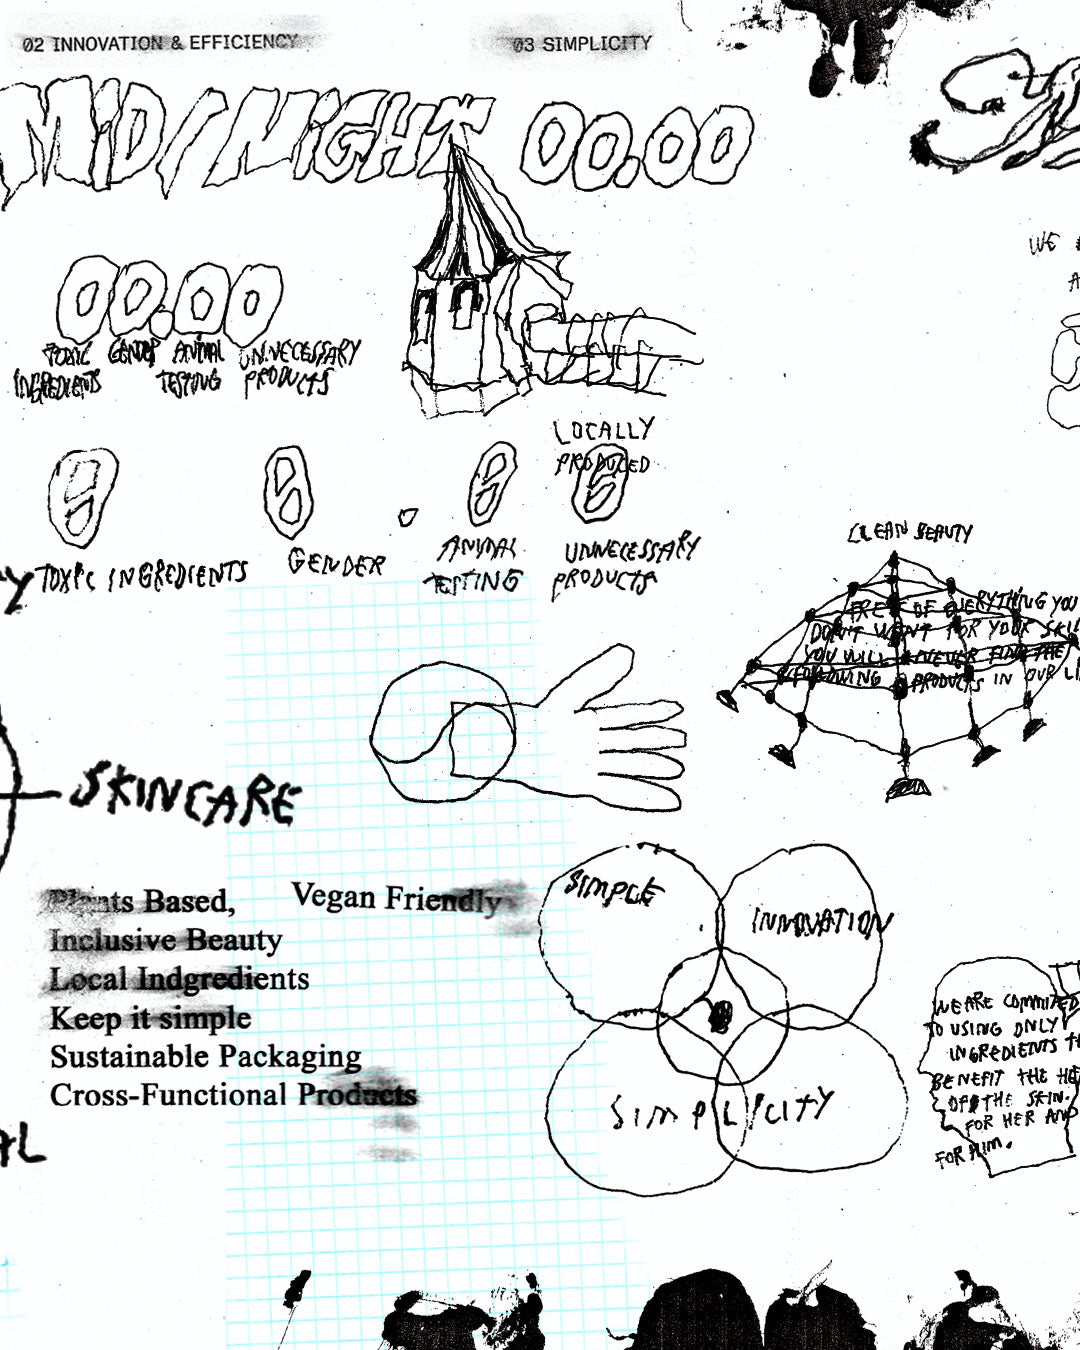 02 INNOVATION & EFFICIENCY
03 SIMPLICITY
MID/NIGHT 00.00
WE
00.00
TOXIC INGREDIENTS
GENDER
ANIMAL TESTING
UNNECESSARY PRODUCTS
LOCALLY
PRODUCED
TOXIC INGREDIENTS
GENDER
ANIMAL
TESTING
UNNECESSARY
PRODUCTS
CLEAN BEAUTY
FREE OF EVERYTHING YOU
DON'T WANT FOR YOUR SKIN
YOU WILL NEVER FIND THE
FOLLOWING PRODUCTS IN OUR LI
SKINCARE
Plants Based,
Vegan Friendly
Inclusive Beauty
Local Indgredients
Keep it simple
Sustainable Packaging
Cross-Functional Products
SIMPLE
INNOVATION
SIMPLICITY
WE ARE COMMITED
TO USING ONLY
INGREDIENTS TH
BENEFIT THE HE
OF THE SKIN.
FOR HER AND
FOR HIM.
AL